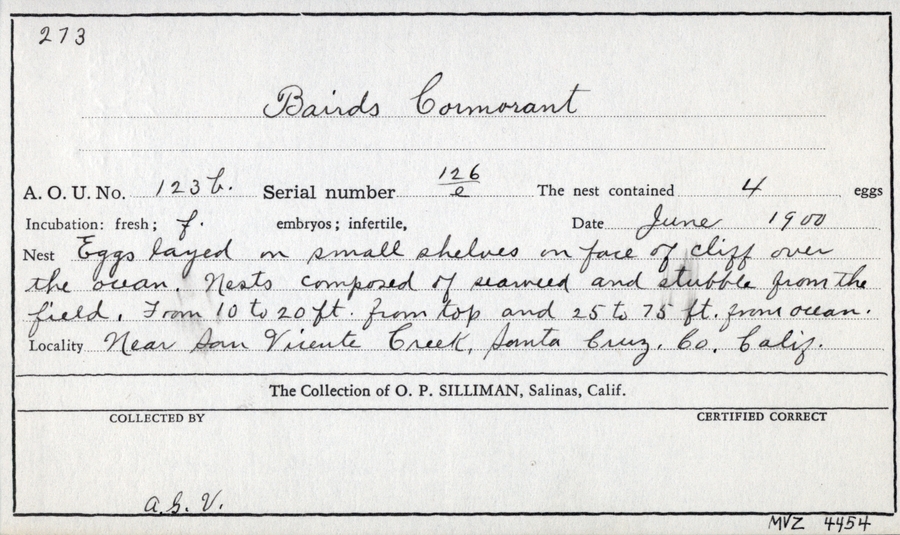 273
Bairds Cormorant
A. O. U. No. 123b. Serial number 126/e The nest contained 4 eggs
Incubation: fresh; f. embryos; infertile, Date June 1900
Nest Eggs layed on small shelves on face of cliff over
the ocean. Nests composed of seaweed and stubble from the
field. From 10 to 20 ft. from top and 25 to 75 ft. from ocean.
Locality Near San Vicente Creek, Santa Cruz. Co. Calif.
The Collection of O. P. SILLIMAN, Salinas, Calif.
COLLECTED BY CERTIFIED CORRECT
a.G.V.
MVZ 4454